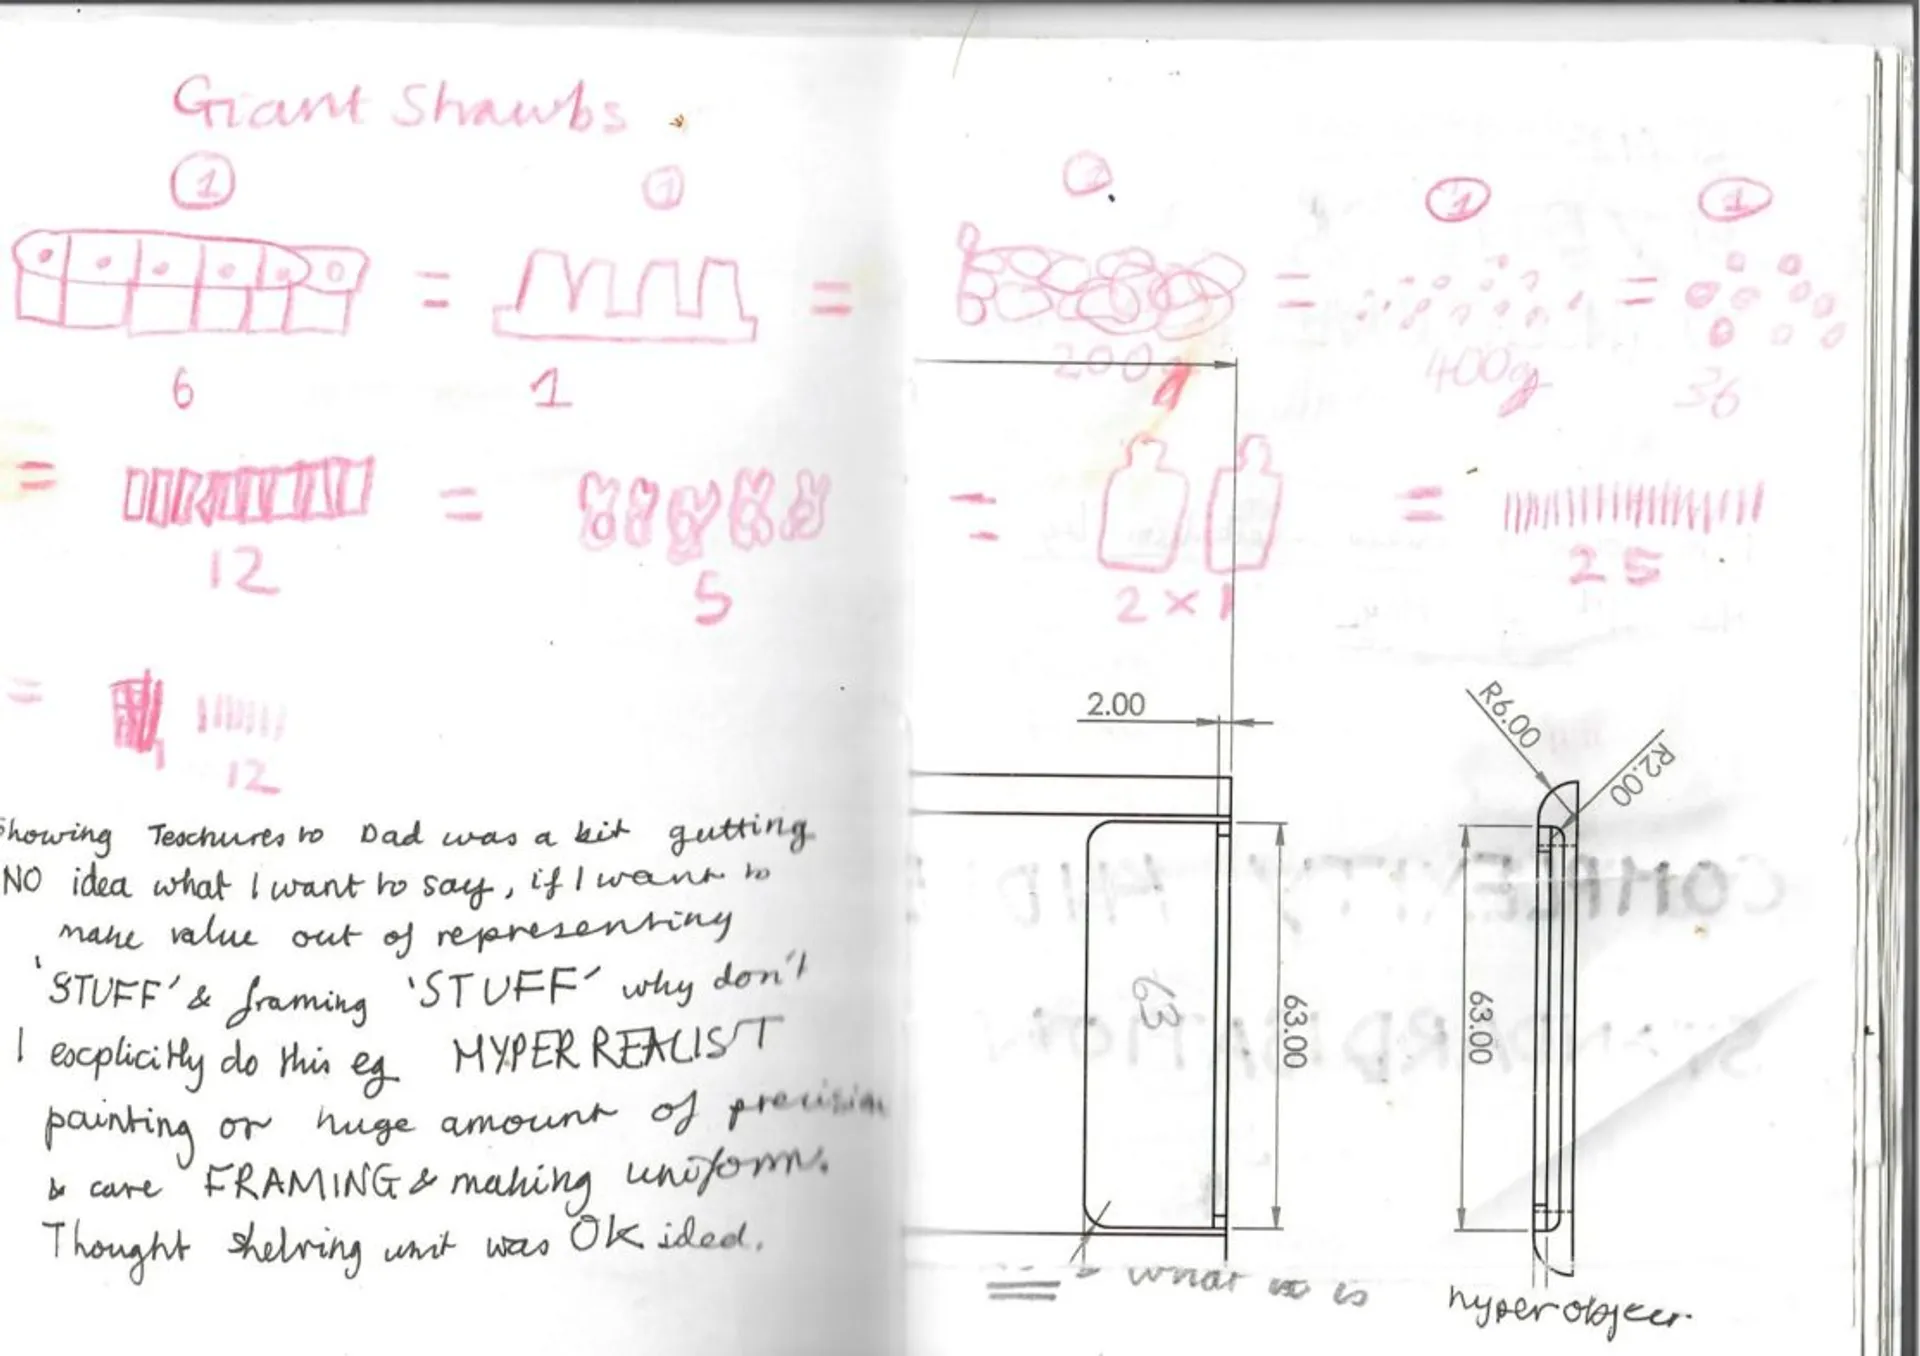 Giant Strawbs
1 1 1 1 1
= = = =
6 1 200g 400g 36
= = = =
12 5 2 x 1 25
=
1 12
2.00
R6.00
R2.00
63.00
63.00
63
Showing Teschures to Dad was a bit gutting
NO idea what I want to say, if I want to
make value out of representing
'STUFF' & framing 'STUFF' why don't
I escplicitly do this eg HYPER REALIST
painting or huge amount of precision
& care FRAMING & making uniform.
Thought shelving unit was OK ided.
COMPLEXITY AND
STANDARDISATION
= what is
hyperobject